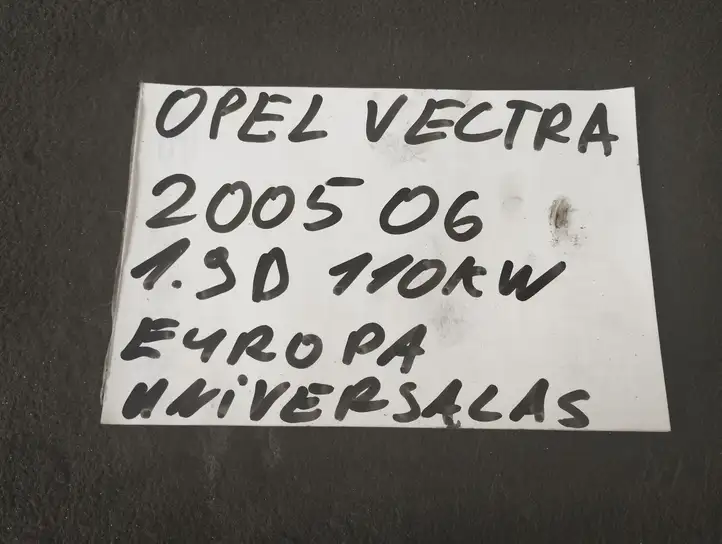 OPEL VECTRA
2005 06
1.9D 110KW
EUROPA
UNIVERSALAS